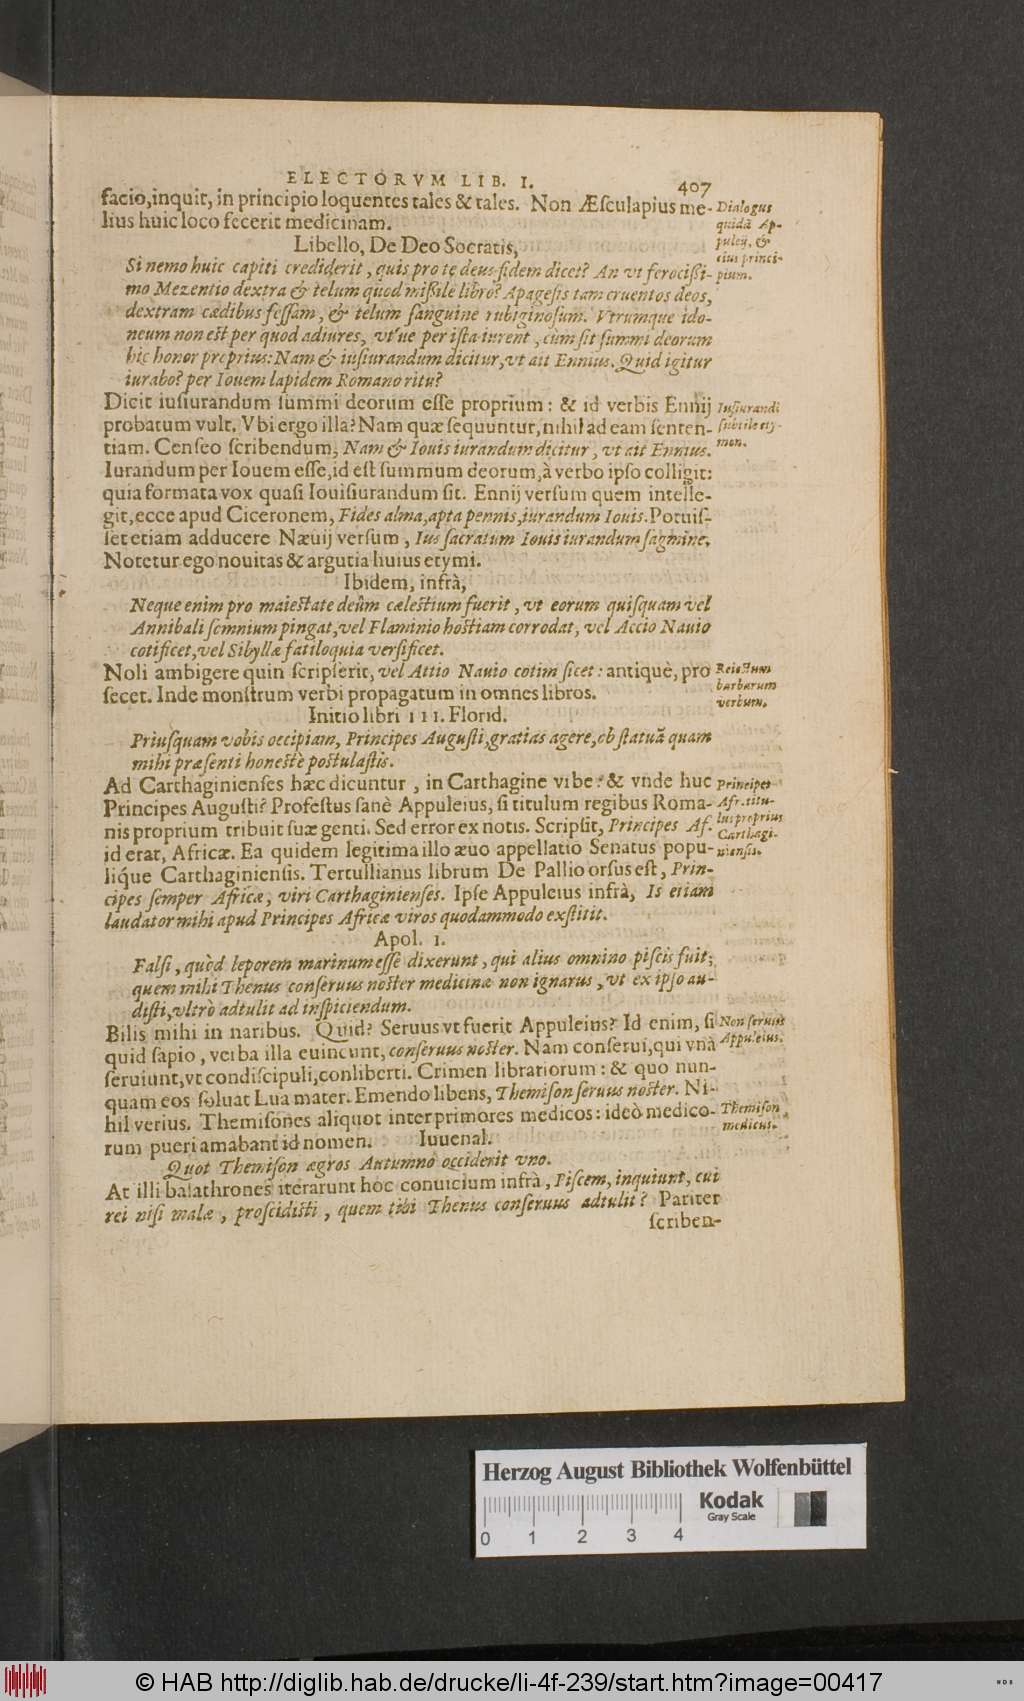 ELECTORVM LIB. I. 407
facio,inquit, in principio loquentes tales & tales. Non Æſculapius me-
lius huic loco fecerit medicinam.
Dialogus
quidā Ap-
puleij, &
eius princi-
pium.
Libello, De Deo Socratis,
Si nemo huic capiti crediderit, quis pro te deus fidem dicet? An vt ferocißi-
mo Mezentio dextra & telum quod mißile libro? Apageſis tam cruentos deos,
dextram cædibus feſſam, & telum ſanguine rubiginoſum. Vtrumque ido-
neum non eſt per quod adiures, vt'ue per iſta iurent, cùm ſit ſummi deorum
hic honor proprius: Nam & iuſiurandum dicitur, vt ait Ennius. Quid igitur
iurabo? per Iouem lapidem Romano ritu?
Dicit iuſiurandum ſummi deorum eſſe proprium: & id verbis Ennij
probatum vult. Vbi ergo illa? Nam quæ ſequuntur, nihil ad eam ſenten-
tiam. Cenſeo ſcribendum, Nam & Iouis iurandum dicitur, vt ait Ennius.
Iuſiurandi
ſubtile ety-
mon.
Iurandum per Iouem eſſe, id eſt ſummum deorum, à verbo ipſo colligit:
quia formata vox quaſi Iouiſiurandum ſit. Ennij verſum quem intelle-
git, ecce apud Ciceronem, Fides alma, apta pennis, iurandum Iouis. Potuiſ-
ſet etiam adducere Næuij verſum, Ius ſacratum Iouis iurandum ſagmine.
Notetur ego nouitas & argutia huius etymi.
Ibidem, infrà,
Neque enim pro maieſtate deûm cæleſtium fuerit, vt eorum quiſquam vel
Annibali ſomnium pingat, vel Flaminio hoſtiam corrodat, vel Accio Nauio
cotificet, vel Sibyllæ fatiloquia verſificet.
Noli ambigere quin ſcripſerit, vel Attio Nauio cotim ſicet: antiquè, pro
ſecet. Inde monſtrum verbi propagatum in omnes libros.
Reiectum
barbarum
verbum.
Initio libri III. Florid.
Priuſquam vobis occipiam, Principes Auguſti, gratias agere, ob ſtatuā quam
mihi præſenti honeſtè poſtulaſtis.
Ad Carthaginienſes hæc dicuntur, in Carthagine vrbe: & vnde huc
Principes Auguſti? Profeſtus ſanè Appuleius, ſi titulum regibus Roma-
nis proprium tribuit ſuæ genti. Sed error ex notis. Scripſit, Principes Af.
id erat, Africæ. Ea quidem legitima illo æuo appellatio Senatus popu-
liq́ue Carthaginienſis. Tertullianus librum De Pallio orſus eſt, Prin-
cipes ſemper Africæ, viri Carthaginienſes. Ipſe Appuleius infrà, Is etiam
laudator mihi apud Principes Africæ viros quodammodo exſtitit.
Principes
Afr. titu-
lus proprius
Carthagi-
nienſis.
Apol. I.
Falſi, quòd leporem marinum eſſe dixerunt, qui alius omnino piſcis fuit;
quem mihi Thenus conſeruus noſter medicinæ non ignarus, vt ex ipſo au-
diſti, vltrò adtulit ad inſpiciendum.
Bilis mihi in naribus. Quid? Seruus vt fuerit Appuleius? Id enim, ſi
quid ſapio, verba illa euincunt, conſeruus noſter. Nam conſerui, qui vnà
ſeruiunt, vt condiſcipuli, conliberti. Crimen librariorum: & quo nun-
quam eos ſoluat Lua mater. Emendo libens, Themiſon ſeruus noſter. Ni-
hil verius. Themiſones aliquot inter primores medicos: ideò medico-
rum pueri amabant id nomen. Iuuenal.
Non ſeruus
Appuleius.
Themiſon
medicus.
Quot Themiſon ægros Autumno occiderit vno.
At illi balathrones iterarunt hoc conuicium infrà, Piſcem, inquiunt, cui
rei niſi malæ, proſcidiſti, quem tibi Thenus conſeruus adtulit? Pariter
ſcriben-
Herzog August Bibliothek Wolfenbüttel
0 1 2 3 4
Kodak
Gray Scale
© HAB http://diglib.hab.de/drucke/li-4f-239/start.htm?image=00417